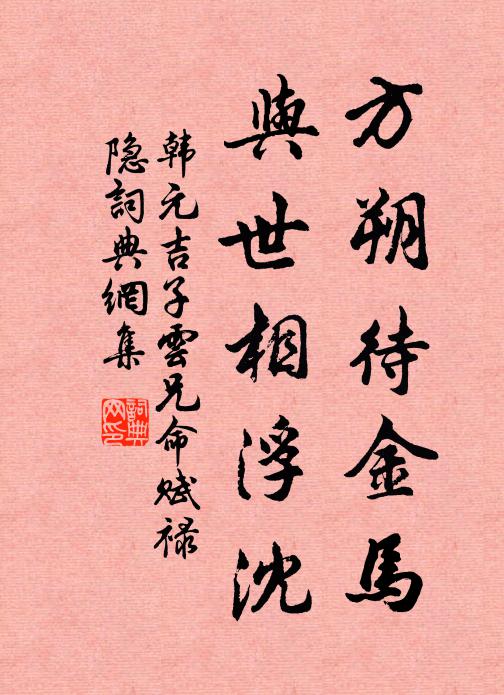 方朔待金馬
與世相浮沈
韩元吉子雲兄命赋禄
隐詞典網集
詞典
网印